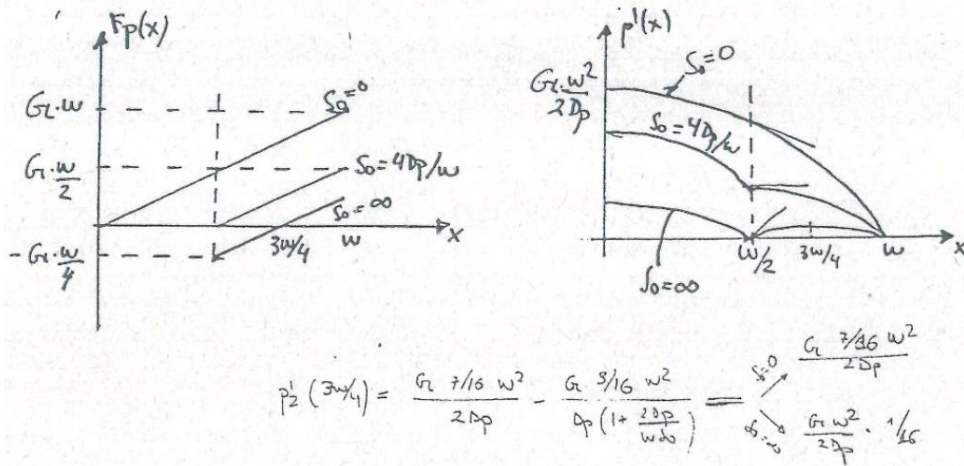 Fp(x)
GL·w
GL·w/2
-GL·w/4
S0=0
S0=4Dp/w
S0=∞
3w/4
w
x
p'(x)
GL·w²/2Dp
S0=0
S0=4Dp/w
S0=∞
w/2
3w/4
w
x
p'2(3w/4) = GL 7/16 w²/2Dp - GL 3/16 w²/Dp(1+2Dp/wS0) =
S=0 GL 7/16 w²/2Dp
S0=∞ GL w²/2Dp · 1/16